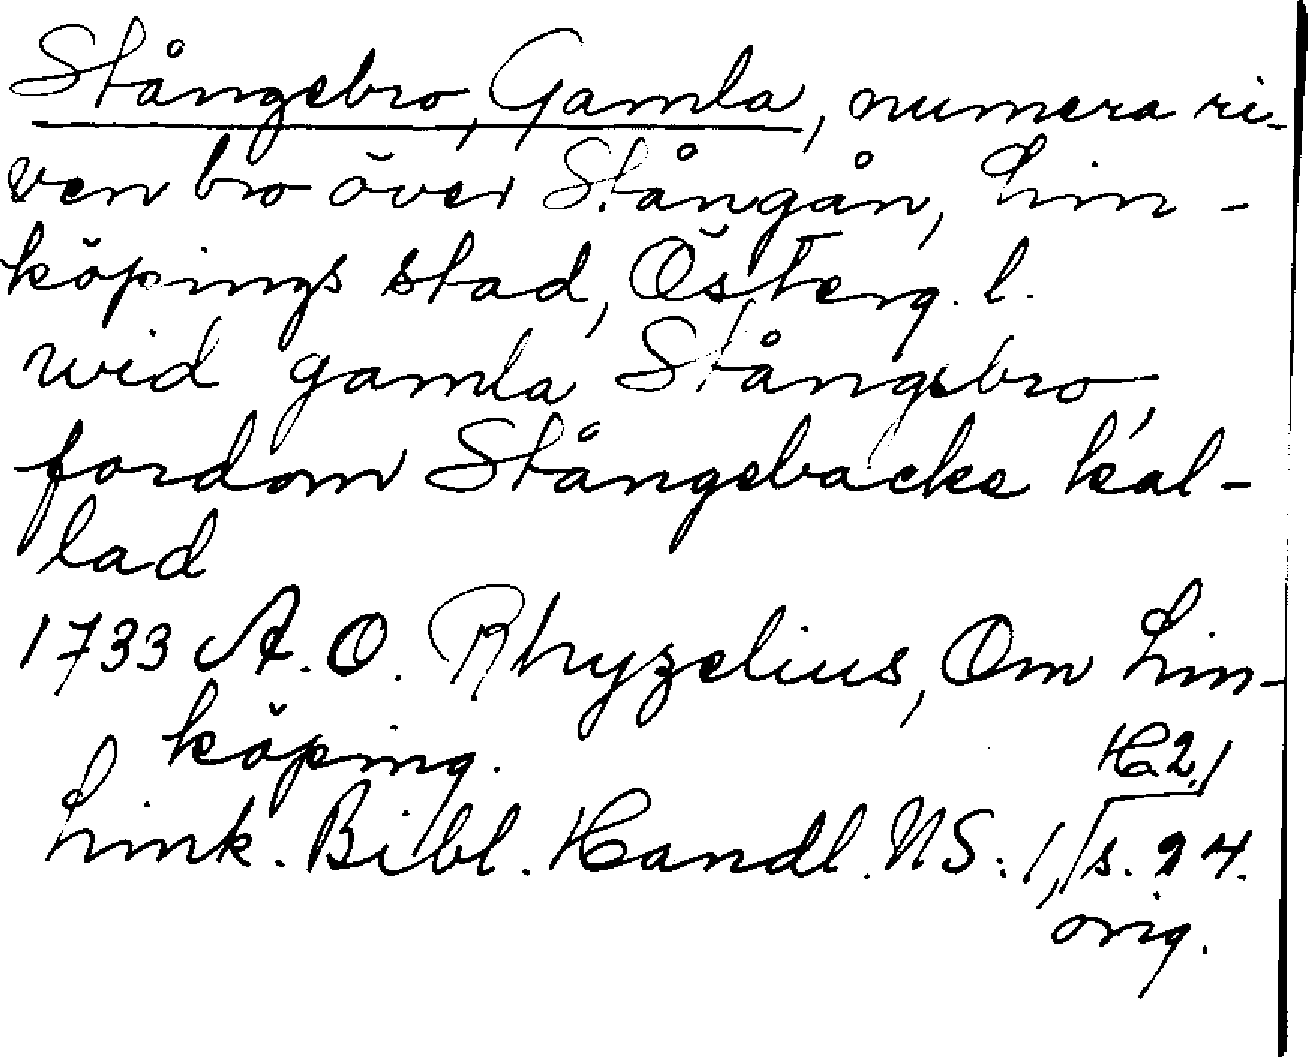 Stångebro, Gamla, numera ri-
ven bro över Stångån, Lin-
köpings stad, Österg. l.
wid gamla Stångebro,
fordom Stångebacke kal-
lad
1733 A. O. Rhyzelius, Om Lin-
köping.
H.2,
Link. Bibl. Handl. NS: 1, s. 24.
orig.